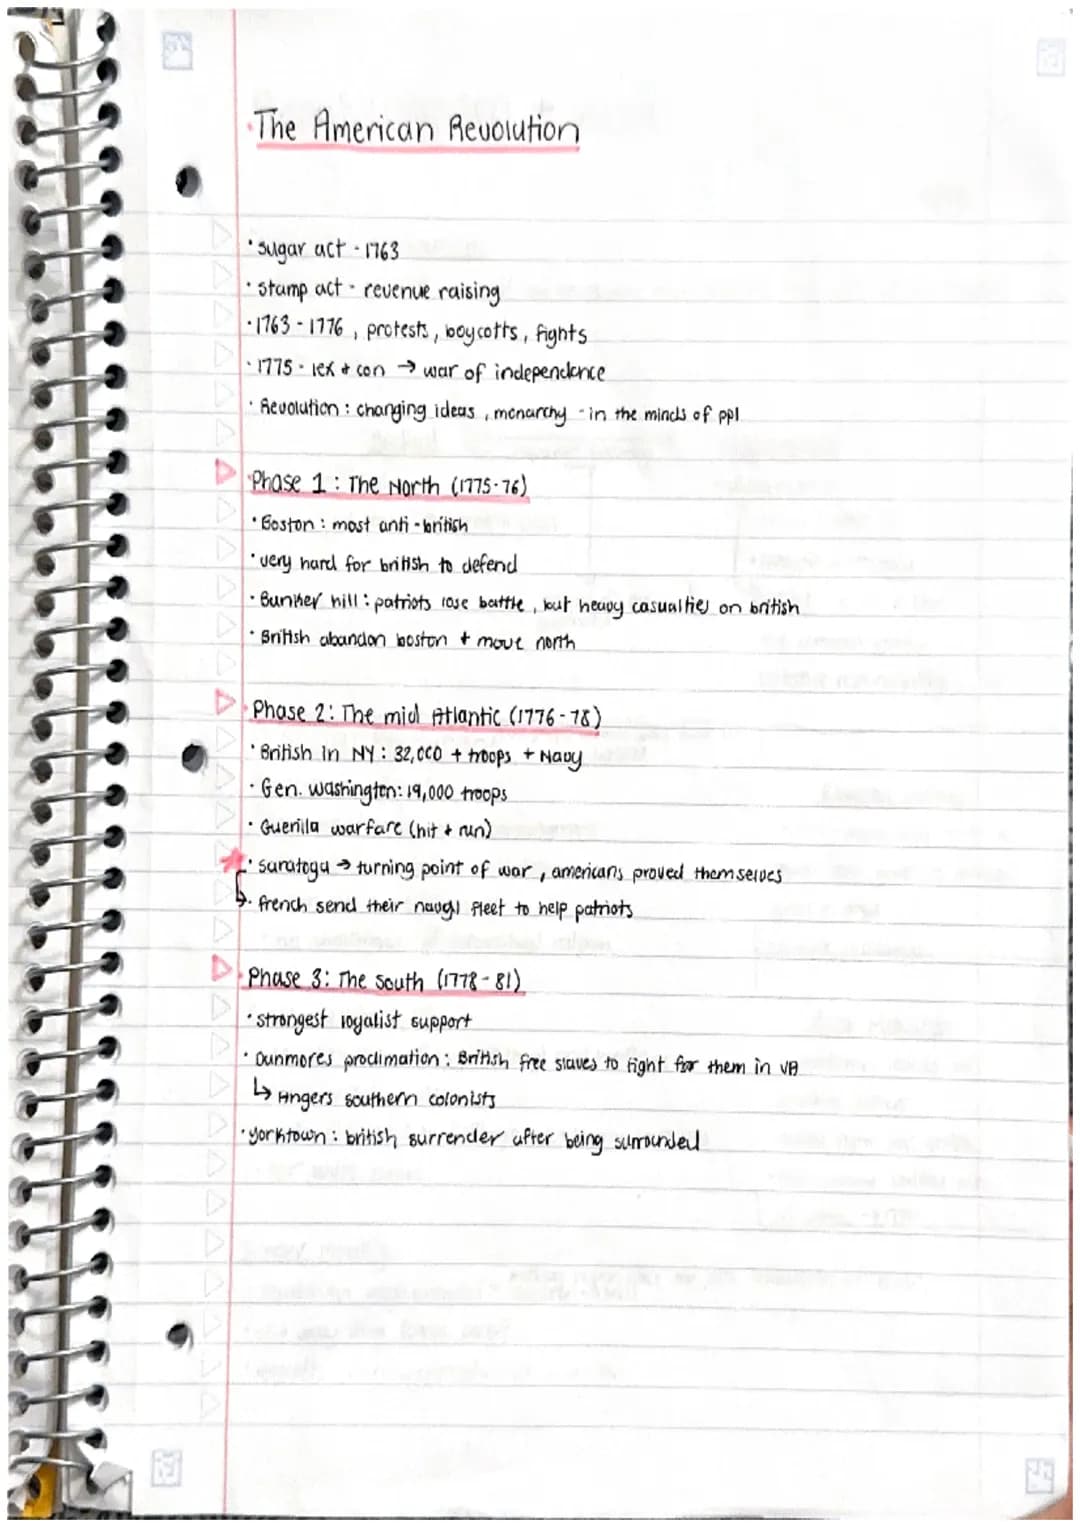 The American Revolution
• sugar act - 1763
• stamp act - revenue raising
• 1763 - 1776, protests, boycotts, fights
• 1775 - lex + con → war of independence
• Revolution: changing ideas, monarchy - in the minds of ppl
Phase 1: The North (1775-76)
• Boston: most anti-british
• very hard for british to defend
• Bunker hill: patriots lose battle, but heavy casualties on british
• British abandon boston + move north
Phase 2: The mid Atlantic (1776-78)
• British in NY: 32,000 + troops + Navy
• Gen. Washington: 19,000 troops
• Guerilla warfare (hit + run)
• saratoga → turning point of war, americans proved themselves
↳ • french send their naval fleet to help patriots
Phase 3: The south (1778-81)
• strongest loyalist support
• Dunmores proclimation: British free slaves to fight for them in VA
↳ Angers southern colonists
• yorktown: british surrender after being surrounded